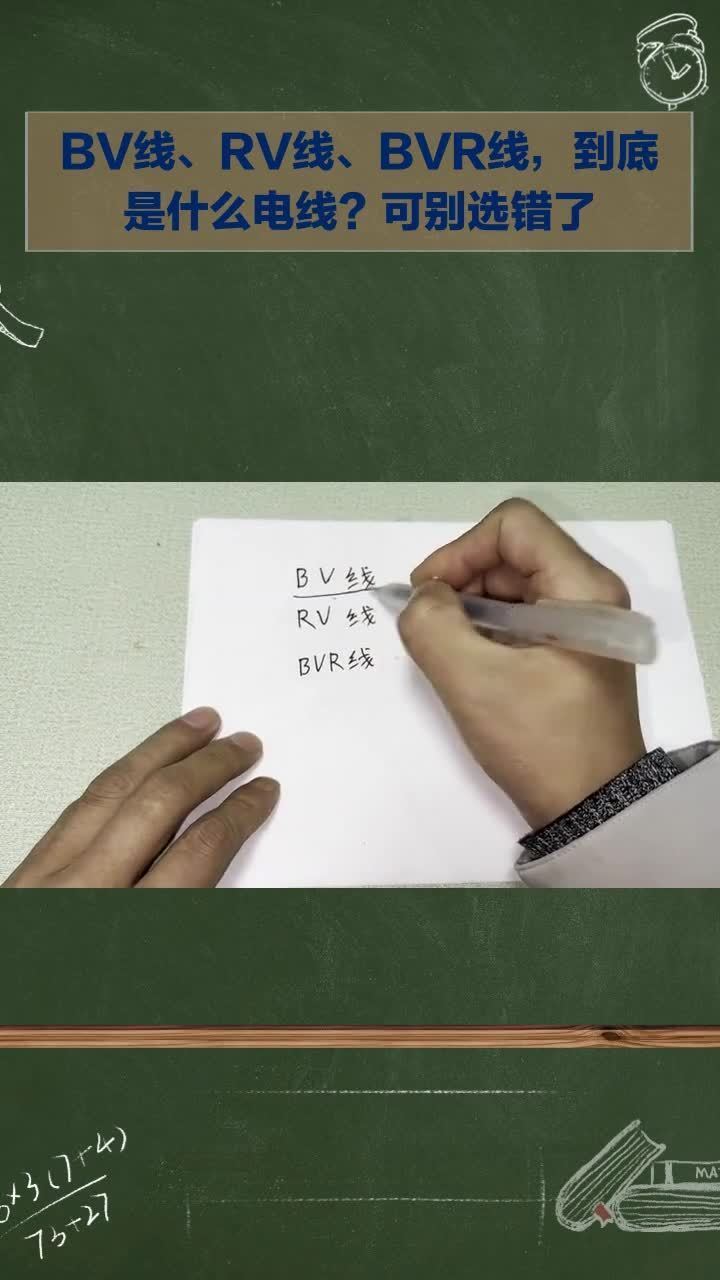 BV线、RV线、BVR线，到底
是什么电线？可别选错了
BV线
RV线
BVR线
×3(7+4)
73+27
MAT